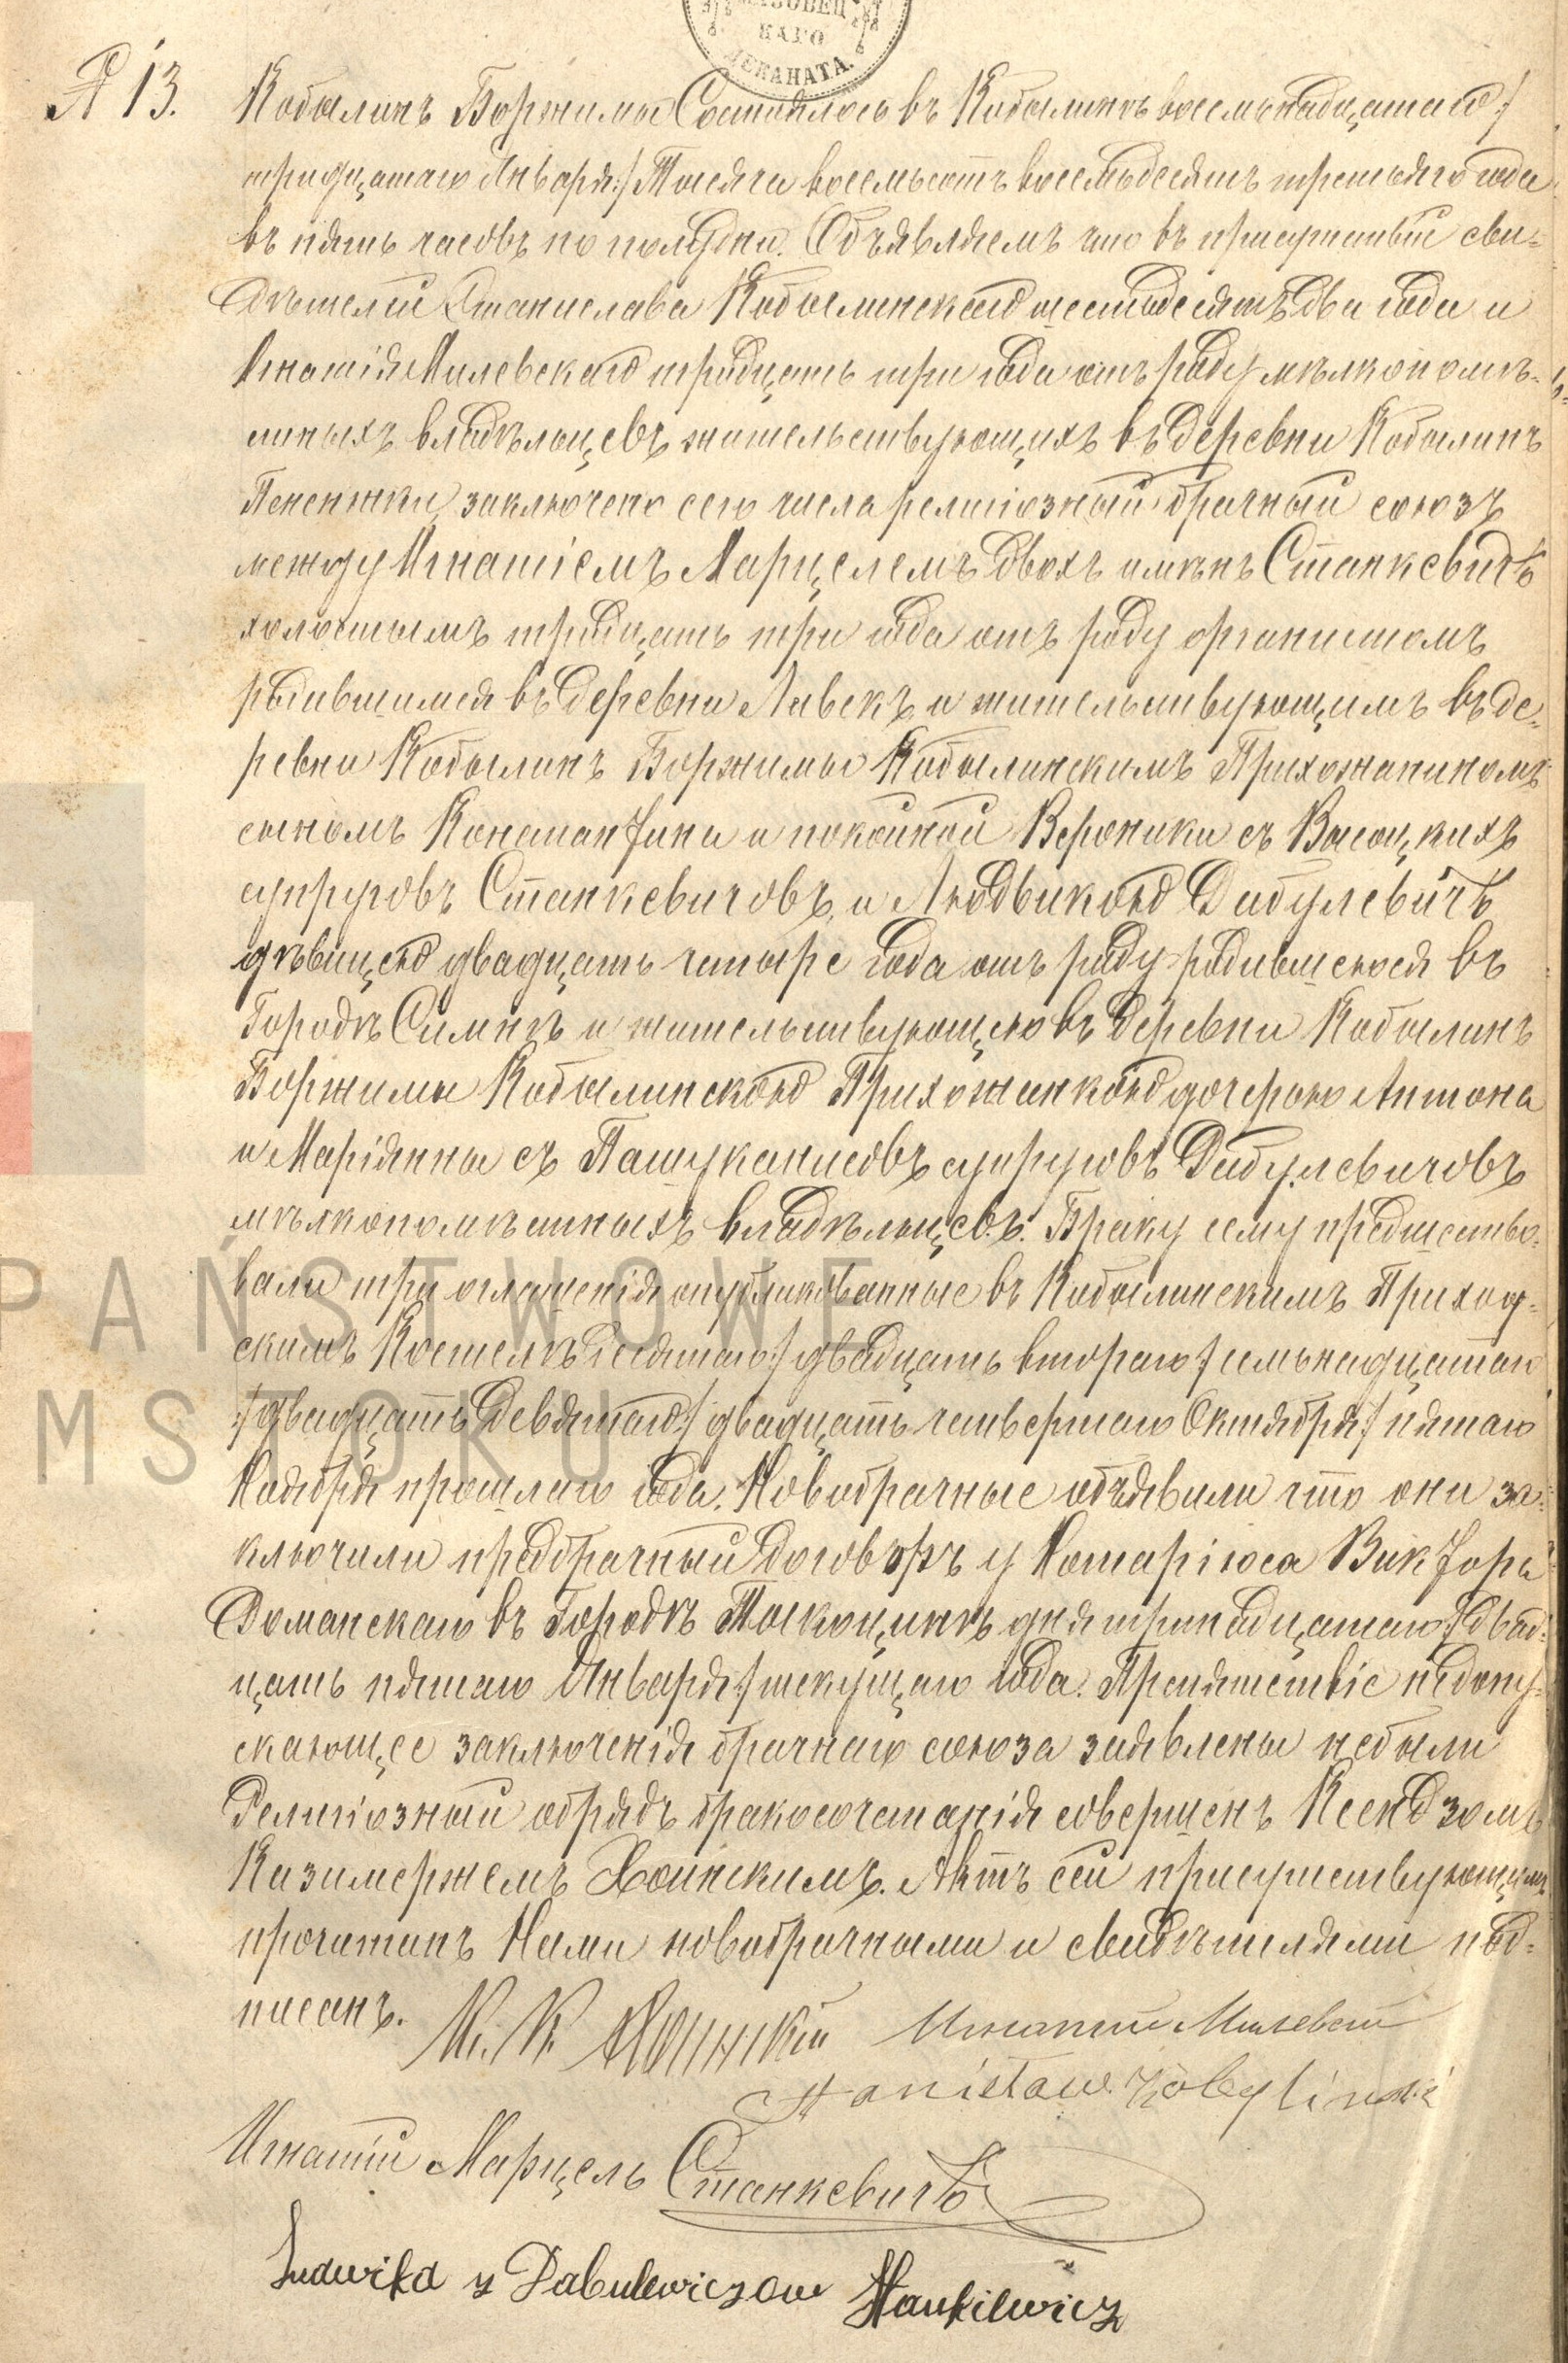 МАЗОВЕЦ
КАГО
ДЕКАНАТА.
№ 13.
Кобылинъ Боржимы Состоялось въ Кобылинѣ восемьнадцатаго /
тридцатаго Января:/ Тысяча восемьсотъ восемьдесятъ третьяго года
въ пять часовъ по полудни. Объявляемъ что въ присутствіи сви=
дѣтелей Станислава Кобылинскаго шестьдесятъ два года и
Игнатія Милевскаго тридцать три года отъ роду мѣлкопомѣ=
стныхъ владѣльцевъ жительствующихъ въ деревни Кобылинъ
Пененжки, заключено сего числа религіозный брачный союзъ
между Игнатіемъ Марцелемъ двохъ именъ Станкевичъ
холостымъ тридцать три года отъ роду органистомъ
родившимся въ деревни Ливекъ и жительствующимъ въ де=
ревни Кобылинъ Боржимы Кобылинскимъ Прихожаниномъ
сыномъ Константина и покойной Вероники съ Высоцкихъ
супруговъ Станкевичовъ, и Людвикою Дабулевичъ
дѣвицею двадцать четыре года отъ роду родившеюся въ
Городѣ Симнѣ и жительствующею въ деревни Кобылинъ
Боржимы Кобылинскою Прихожанкою дочерью Антона
и Маріянны съ Пашуканисовъ супруговъ Дабулевичовъ
мѣлкопомѣстныхъ владѣльцевъ. Браку сему предшество=
вали три оглашенія опубликованные въ Кобылинскимъ Приход=
скимъ Костелѣ десятаго:/ двадцать втораго:/ семьнадцатаго
:/двадцать девятаго:/ двадцать четвертаго Октября:/ пятаго
Ноября прошлаго года. Новобрачные объявили что они за=
ключили предбрачный договоръ у Нотаріюса Виктора
Доманскаго въ Городѣ Тыкоцинѣ дня тринадцатаго:/ двад=
цать пятаго Января:/ текущаго года. Препятствіе недопу=
скающее заключенія брачнаго союза заявлены небыли
Религіозный обрядъ бракосочетанія совершенъ Ксендзомъ
Казимержемъ Хоинскимъ. Актъ сей присутствующимъ
прочитанъ Нами новобрачными и свидѣтелями под=
писанъ.
Кс. К. Хоинскій Игнатій Милевскій
Stanisław Kobylinski
Игнатій Марцель Станкевичъ
Ludwika z Dabulewiczow Stankiewicz
PAŃSTWOWE
MSTOKU